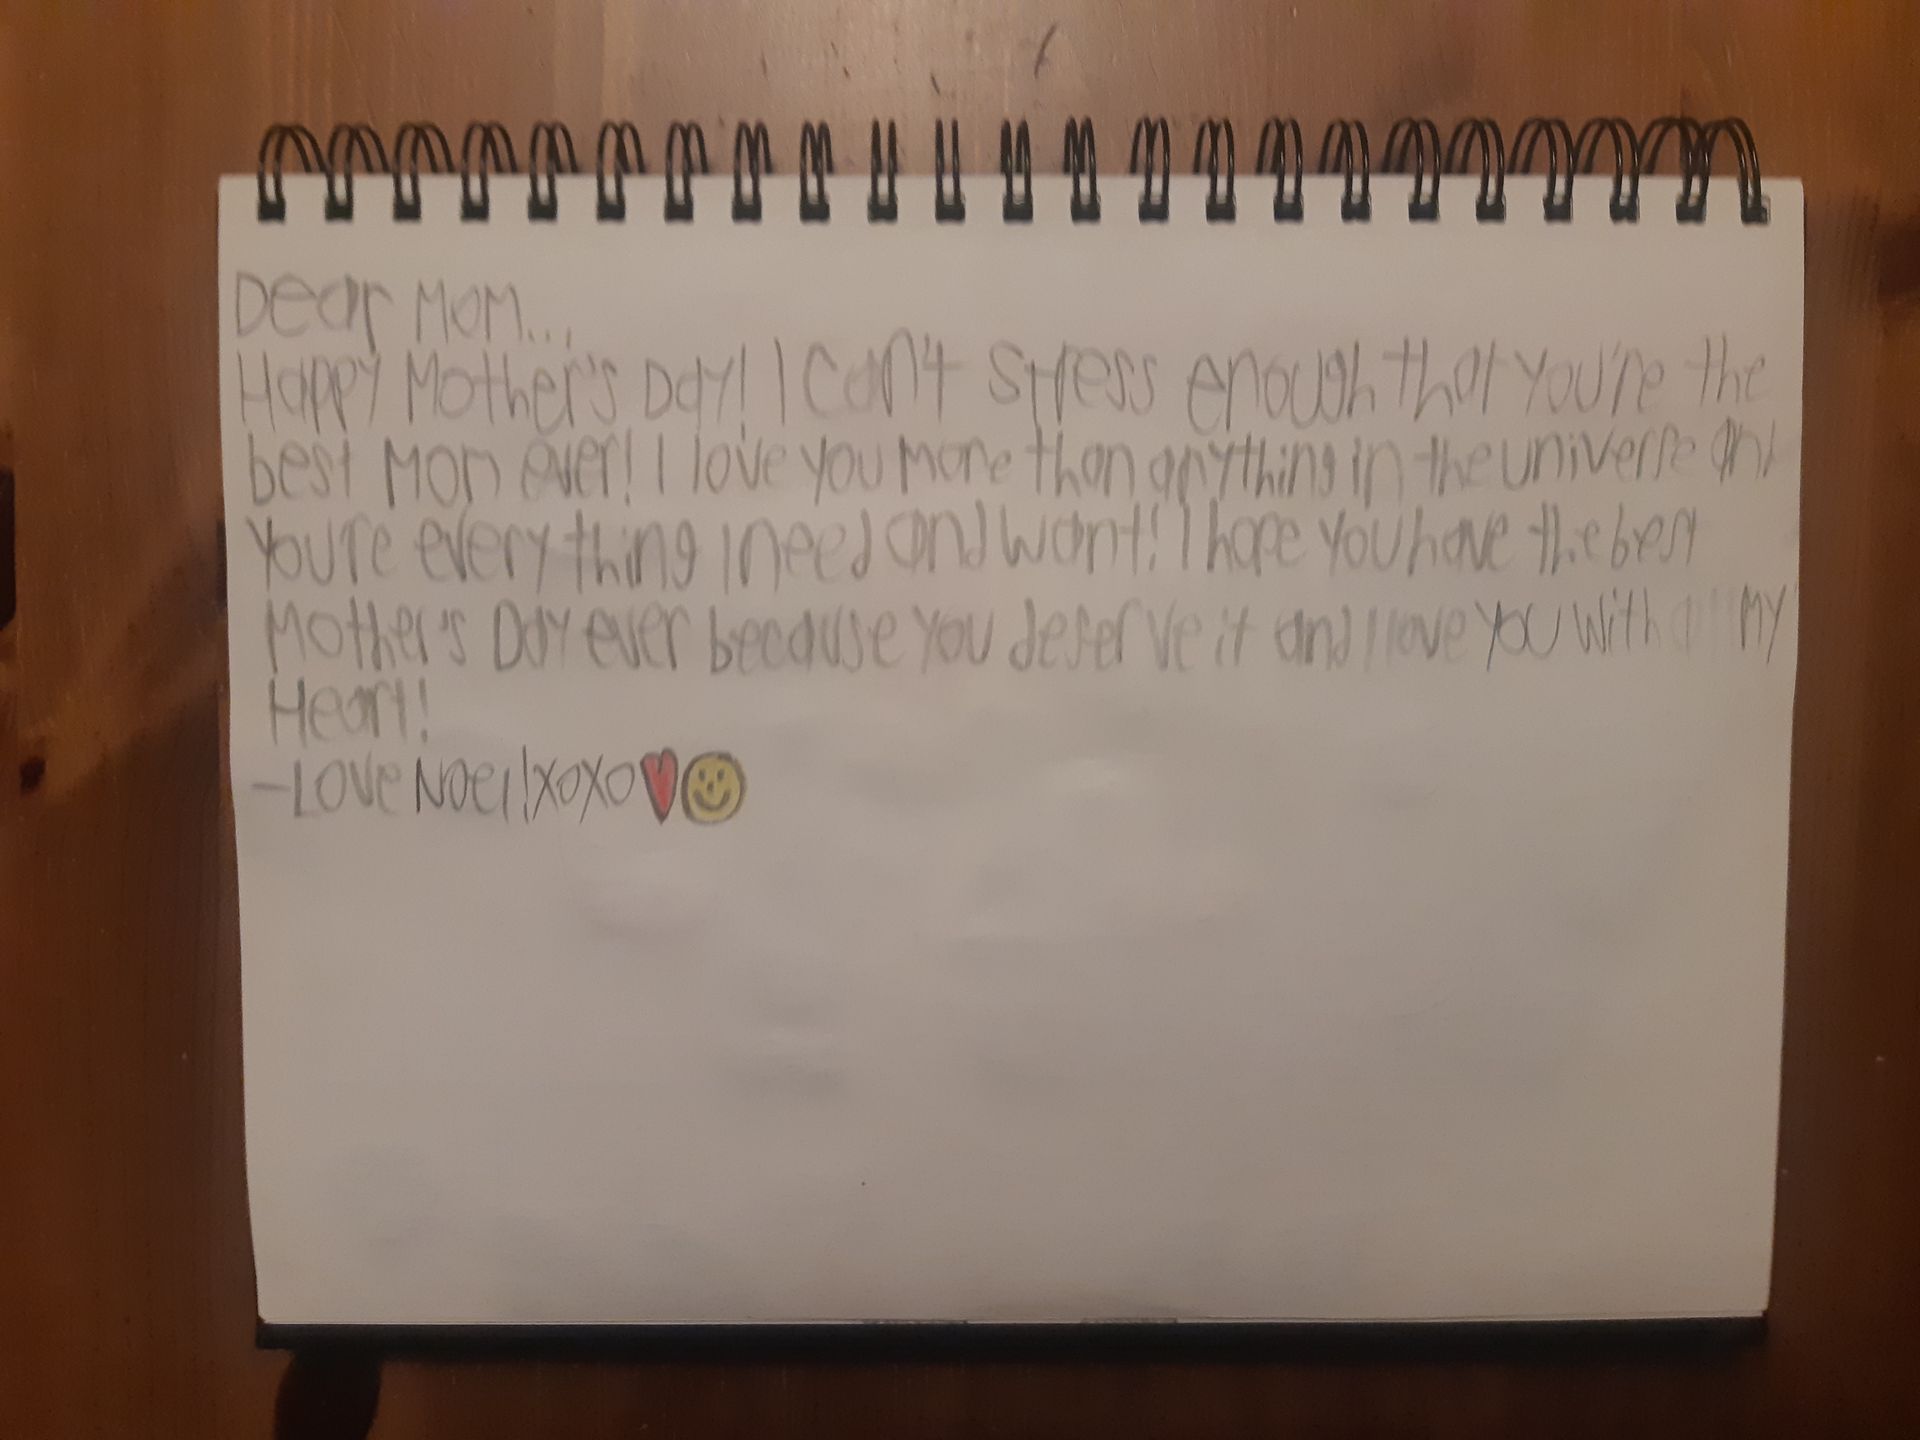 Dear Mom...
Happy Mother's Day! I can't stress enough that you're the
best Mom ever! I love you more than anything in the universe and
you're everything I need and want! I hope you have the best
Mother's Day ever because you deserve it and I love you with all my
Heart!
-Love Noel!xoxo❤️🙂